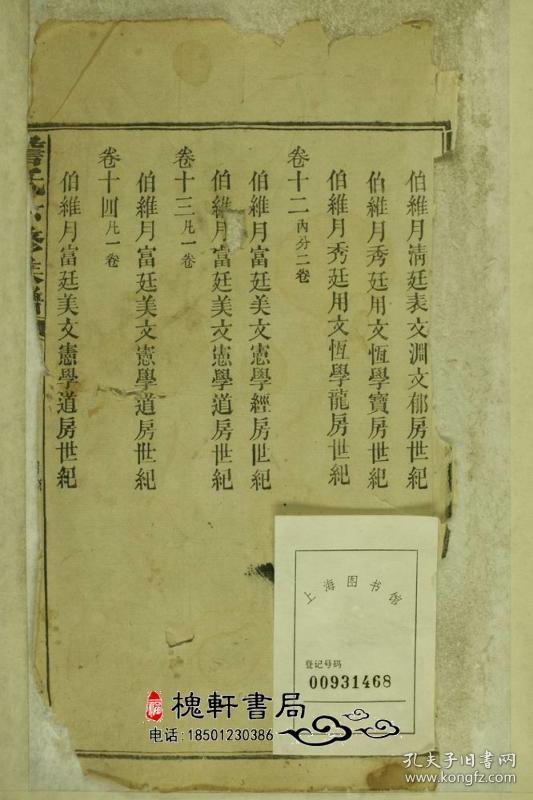 伯維月淸廷表文淵文郁房世紀
伯維月秀廷用文恆學寶房世紀
伯維月秀廷用文恆學龍房世紀
卷十二內分二卷
伯維月富廷美文憲學經房世紀
伯維月富廷美文憲學道房世紀
卷十三凡一卷
伯維月富廷美文憲學道房世紀
卷十四凡一卷
伯維月富廷美文憲學道房世紀
上海图书馆
登记号码
00931468
槐軒書局
电话:18501230386
孔夫子旧书网
www.kongfz.com